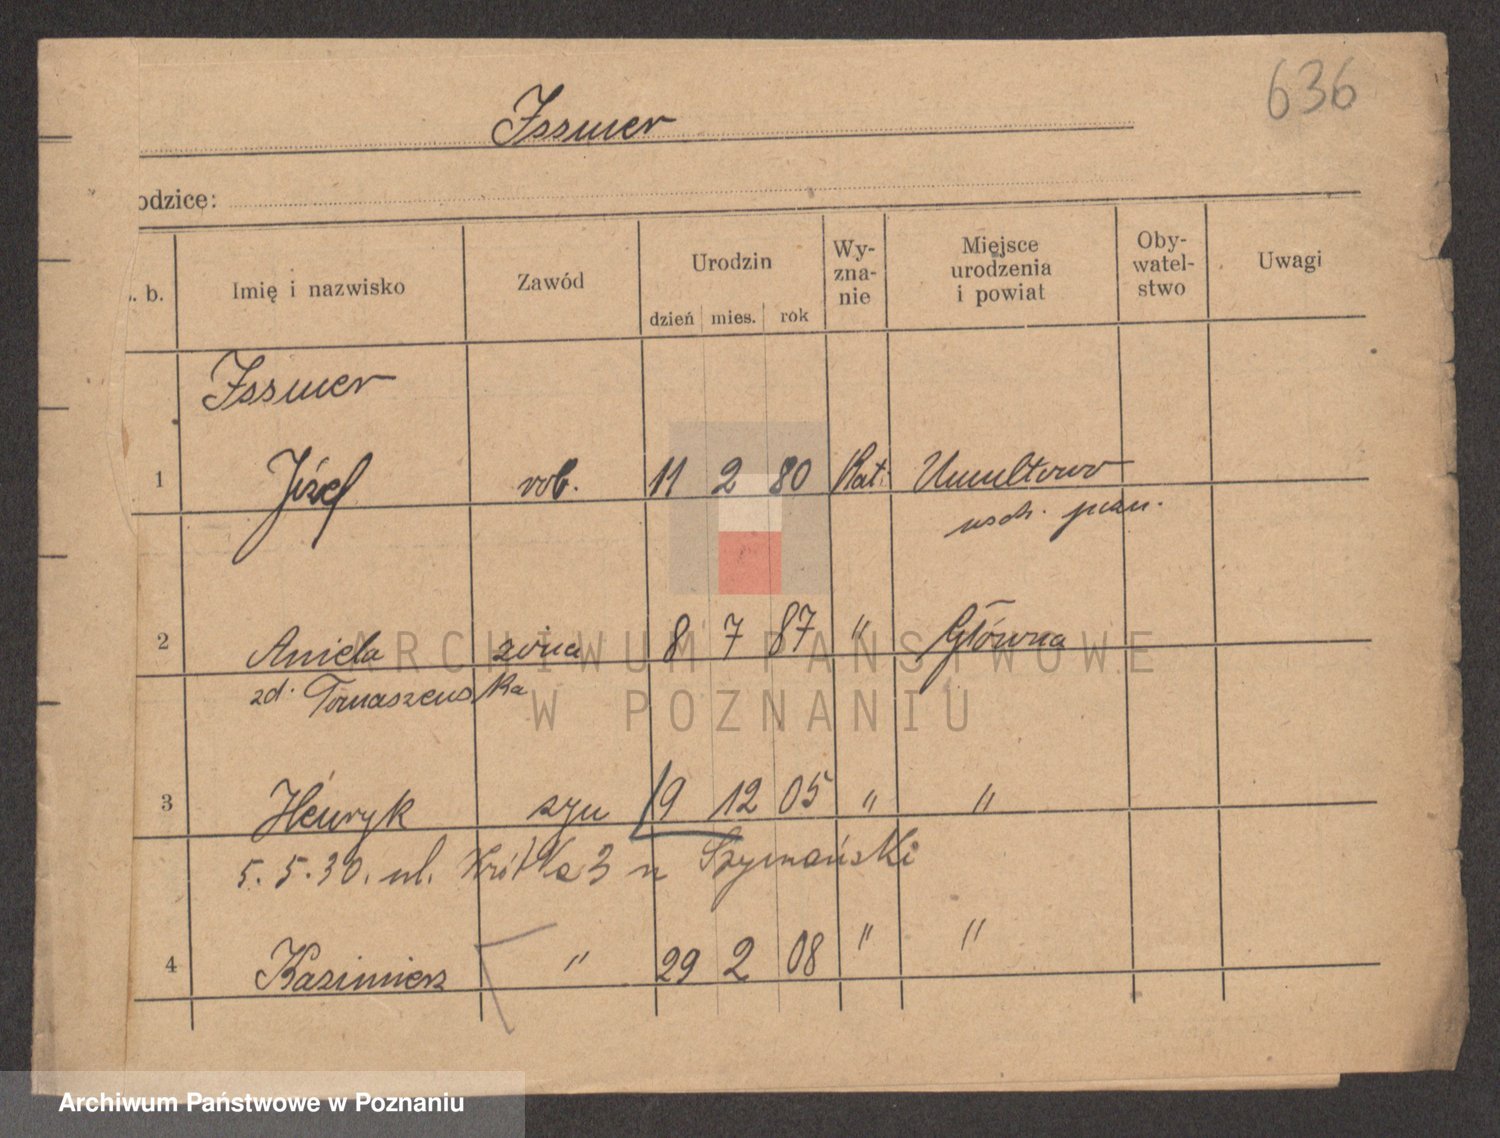 636
Issmer
odzice:
. b. Imię i nazwisko Zawód Urodzin dzień mies. rok Wy-zna-nie Miejsce urodzenia i powiat Oby-watel-stwo Uwagi
Issmer
1 Józef rob. 11 2 80 Kat. Umultowo
wsch. pozn.
2 Aniela żona 8 7 87 " Główna
zd. Tomaszewska
3 Henryk syn 9 12 05 " "
5.5.30. ul. Krótka 3 u Szymański
4 Kazimierz " 29 2 08 " "
ARCHIWUM PAŃSTWOWE
W POZNANIU
Archiwum Państwowe w Poznaniu